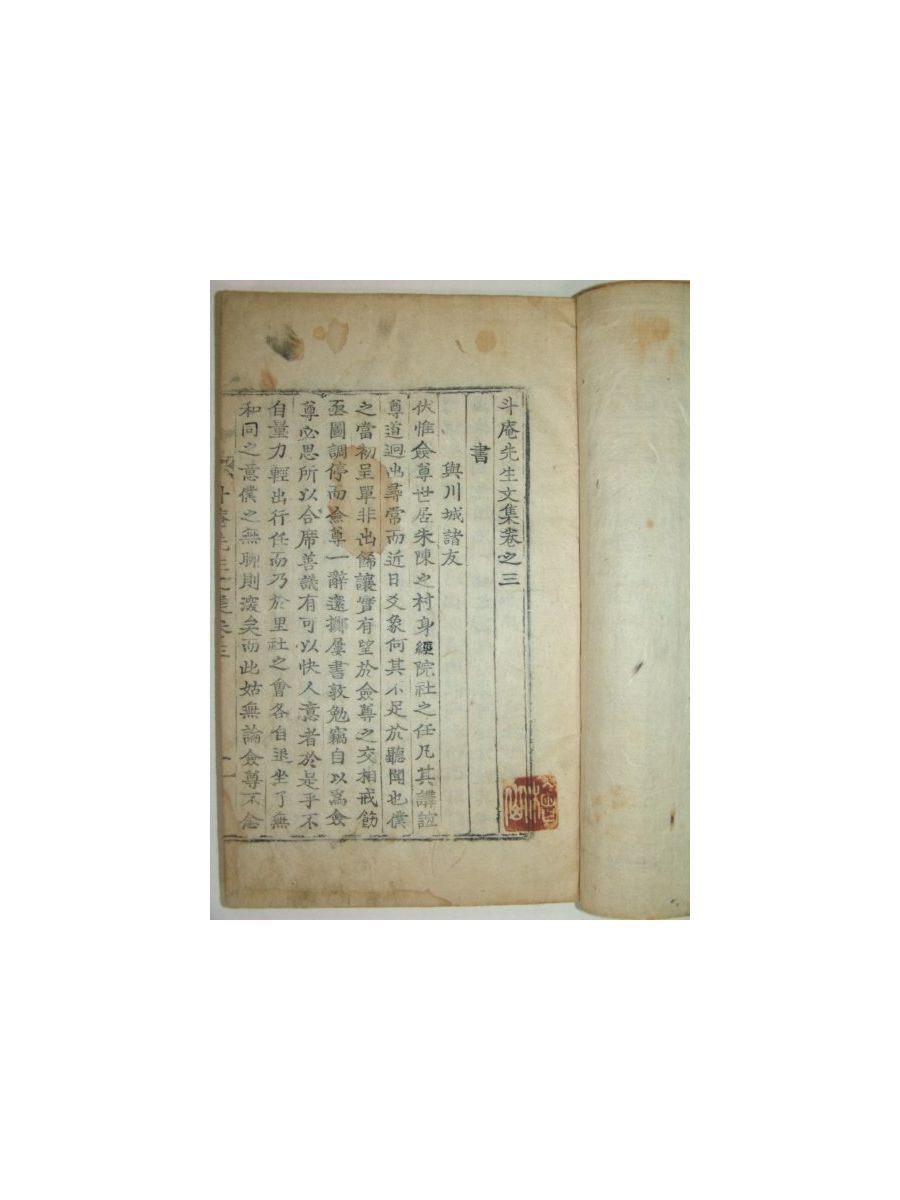 斗庵先生文集卷之三
書
與川城諸友
伏惟僉尊世居朱陳之村身經院社之任凡其講誼
尊道迥出尋常而近日爻象何其不足於聽聞也僕
之當初呈單非出餙讓實有望於僉尊之交相戒飭
亟圖調停而僉尊一辭還擲屢書敦勉竊自以爲僉
尊必思所以合席善議有可以快人意者於是乎不
自量力輕出行任而乃於里社之會各自退坐了無
和同之意僕之無聊則深矣而此姑無論僉尊不念
斗庵先生文集卷三